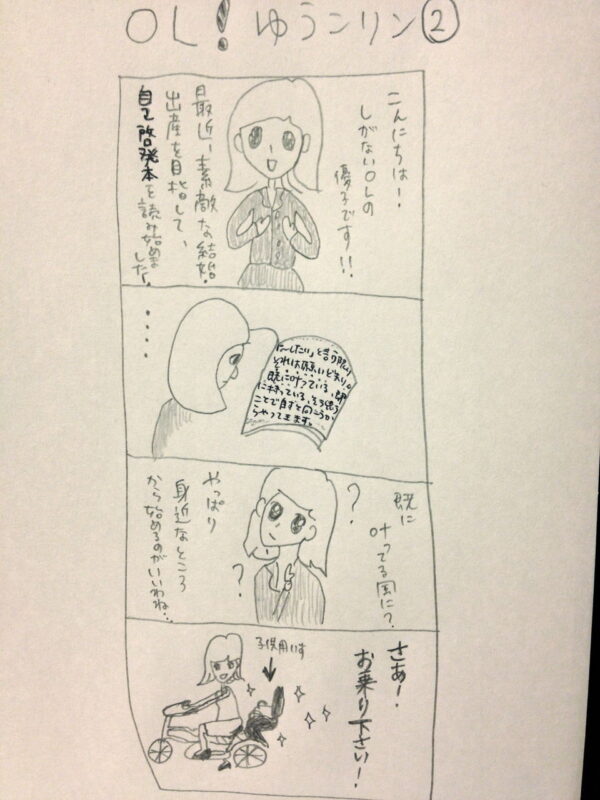 OL! ゆうコリン②
こんにちは!
しがないOLの
優子です!!
最近、素敵な結婚・
出産を目指して、
自己啓発本を読み始めました!
「〜したい」と言う限り
それは願いどまり。
既に叶っている、既
に持っている、そう思う
ことで自ずと向こうか
らやってきます。
・・・・
既に
叶ってる風に?
?
?
やっぱり
身近なところ
から始めるのがいいわね…
さあ!
お乗り下さい!
子供用いす